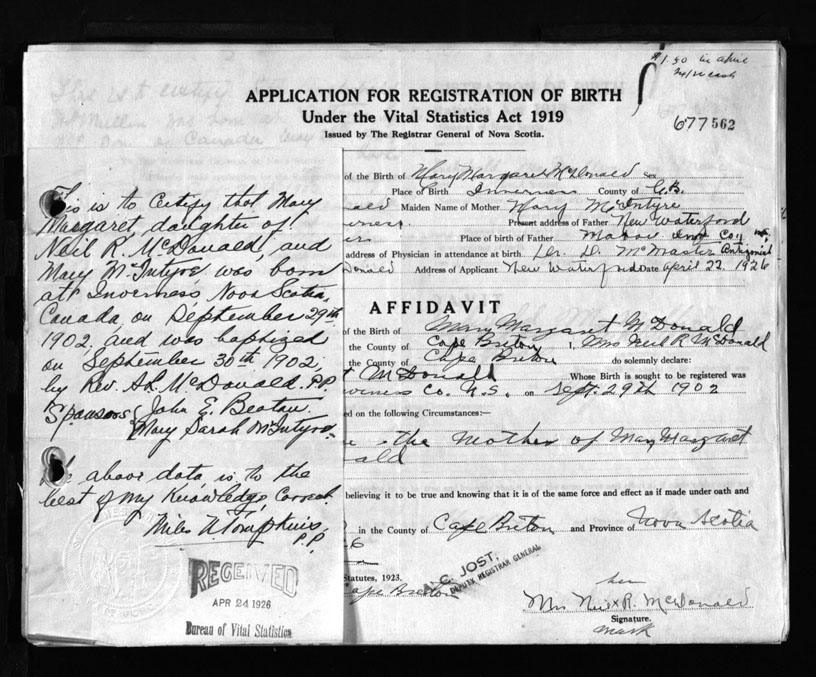 $1.50 in april
24/26 cash
APPLICATION FOR REGISTRATION OF BIRTH
Under the Vital Statistics Act 1919
Issued by The Registrar General of Nova Scotia.
677562
This is to certify that Mary
Margaret, daughter of
Neil R. McDonald, and
Mary McIntyre was born
at Inverness Nova Scotia,
Canada, on September 29th
1902. and was baptized
on September 30th 1902;
by Rev. A.L. McDonald. P.P.
Sponsors John E. Beaton.
Mary Sarah McIntyre.
The above data is to the
best of my Knowledge, Correct.
Miles N Tompkins,
P.P.
RECEIVED
APR 24 1926
Bureau of Vital Statistics
of the Birth of Mary Margaret McDonald Sex
Place of Birth Inverness County of C.B.
ald Maiden Name of Mother Mary McIntyre
erness. Present address of Father New Waterford
Place of birth of Father Mabou Inv Co., N.S.
address of Physician in attendance at birth Dr. D. McMaster Antigonish
Donald Address of Applicant New Waterford Date april 22, 1926
AFFIDAVIT
of the Birth of Mary Margaret McDonald
the County of Cape Breton I, Mrs Neil R McDonald
the County of Cape Breton do solemnly declare:
t McDonald Whose Birth is sought to be registered was
verness Co. N.S. on Sept. 29th 1902
ed on the following Circumstances:—
the Mother of Mary Margaret
ald
believing it to be true and knowing that it is of the same force and effect as if made under oath and
in the County of Cape Breton and Province of Nova Scotia
6
Statutes, 1923.
A. C. JOST,
DEPUTY REGISTRAR GENERAL
Cape Breton
her
Mrs Neil x R. McDonald
Signature.
mark